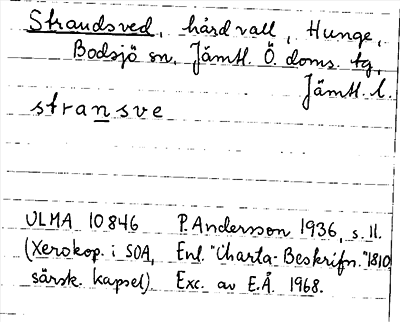 Strandsved, hård vall, Hunge,
Bodsjö sn. Jämtl. Ö. doms. tg,
Jämtl. l.
stransve
ULMA 10846 P. Andersson 1936, s. 11.
(Xerokop. i SOA, Enl. "Charta-Beskrifn." 1810
särsk. kapsel) Exc. av E.Å. 1968.